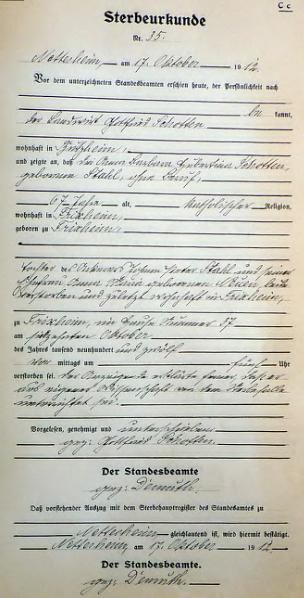 C c
Sterbeurkunde
Nr. 35.
Nettersheim, am 17. Oktober 1912.
Vor dem unterzeichneten Standesbeamten erschien heute, der Persönlichkeit nach
be kannt,
der Landwirt Gottfried Schotten
wohnhaft in
und zeigte an, daß die Anna Barbara Hubertina Schotten,
geborenen Stahl, ohne Beruf,
67 Jahre alt, katholischer Religion,
wohnhaft in Frixheim,
geboren zu Frixheim,
Tochter des Ackerers Johann Peter Stahl und seiner
Ehefrau Anna Maria geborenen beide
verstorben und zuletzt wohnhaft in Frixheim,
zu Frixheim, im Hause Nummer 37
am siebzehnten Oktober
des Jahres tausend neunhundert und zwölf
vor mittags um fünf Uhr
verstorben sei. Der Anzeigende erklärte ferner, daß er
aus eigener Wissenschaft von dem Sterbefalle
unterrichtet sei.
Vorgelesen, genehmigt und unterschrieben
gez: Gottfried Schotten.
Der Standesbeamte
gez: Demuth.
Daß vorstehender Auszug mit dem Sterbehauptregister des Standesamtes zu
Nettersheim gleichlautend ist, wird hiermit bestätigt.
Nettersheim, am 17. Oktober 1912.
Der Standesbeamte.
gez: Demuth.